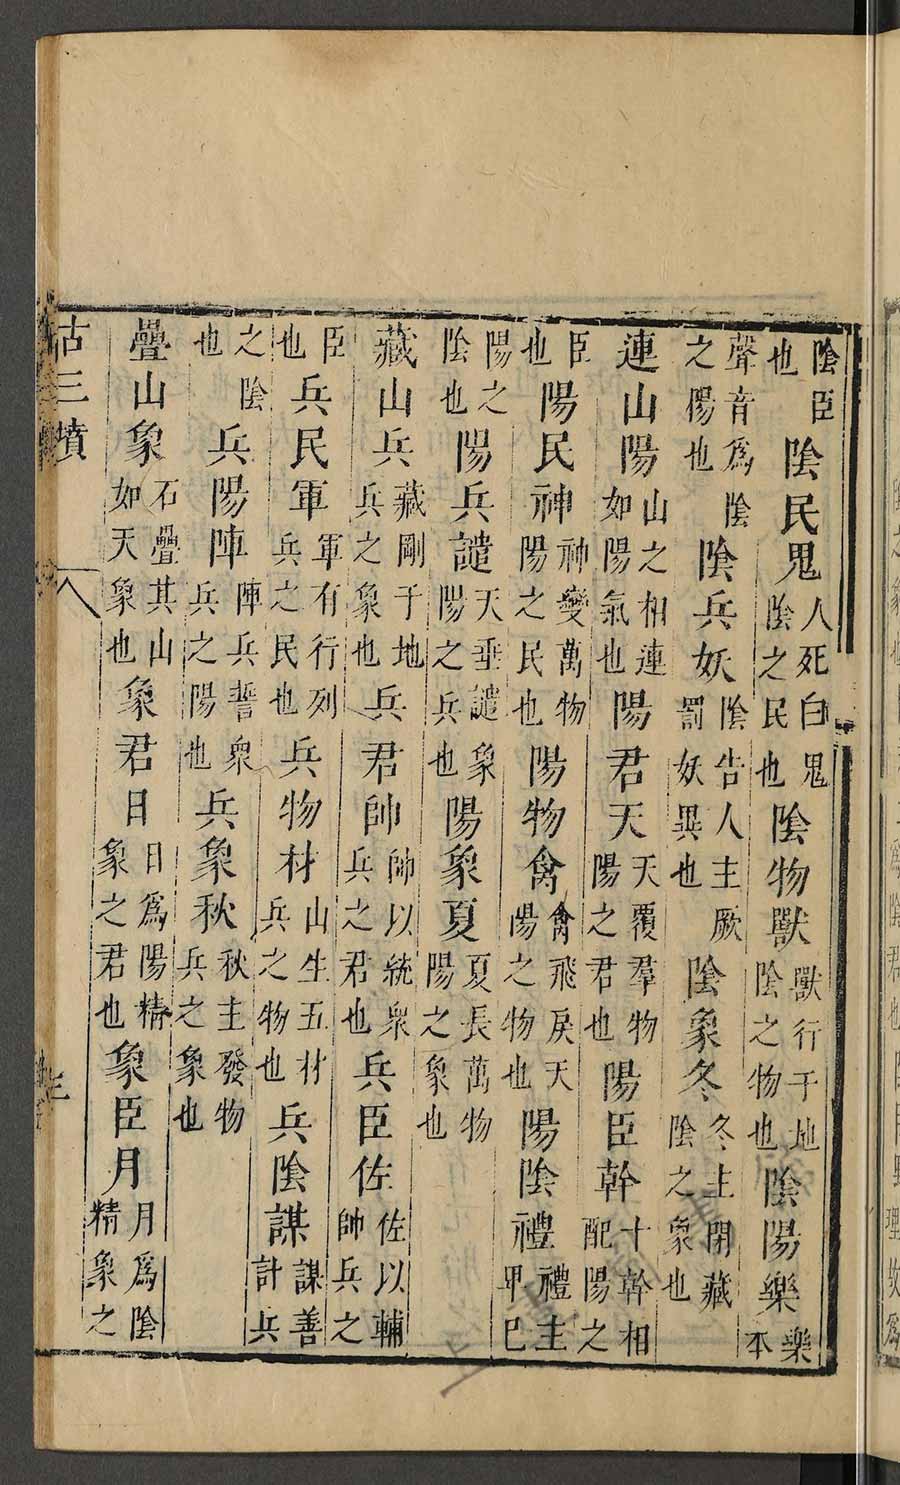 陰臣也陰民鬼人死曰鬼陰之民也陰物獸獸行于地陰之物也陰陽樂樂本
聲音爲陰之陽也陰兵妖陰告人主厥罰妖異也陰象冬冬主閉藏陰之象也
連山陽山之相連如陽氣也陽君天天覆羣物陽之君也陽臣幹十幹相配陽之
臣也陽民神神變萬物陽之民也陽物禽禽飛戾天陽之物也陽陰禮禮主卑巳
陽之陰也陽兵譴天垂譴象陽之兵也陽象夏夏長萬物陽之象也
藏山兵藏剛于地兵之象也兵君帥帥以統衆兵之君也兵臣佐佐以輔帥兵之
臣也兵民軍軍有行列兵之民也兵物材山生五材兵之物也兵陰謀謀善計兵
之陰也兵陽陣陣兵誓衆兵之陽也兵象秋秋主發物兵之象也
疊山象石疊其山如天象也象君日日爲陽精象之君也象臣月月爲陰精象之
古三墳 八